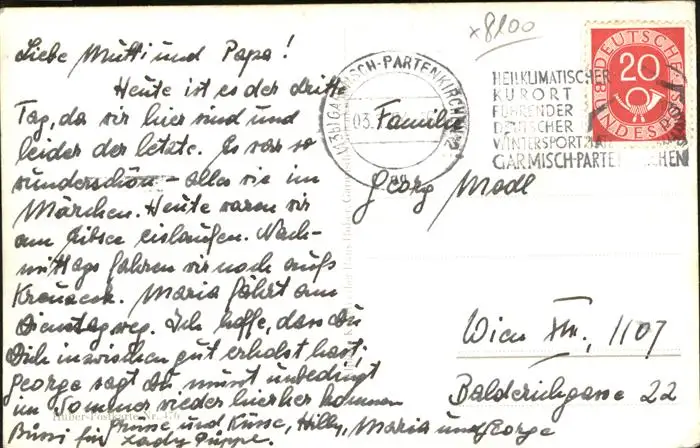 Liebe Mutti und Papa!
Heute ist es der dritte
Tag, da wir hier sind und
leider der letzte. Es war so
wunderschön - alles wie im
Märchen. Heute waren wir
am Eibsee eislaufen. Nach-
mittags fahren wir noch aufs
Kreuzeck. Maria fährt am
Dienstag weg. Ich hoffe, dass Du
Dich inzwischen gut erholst hast;
George sagt Du musst unbedingt
im Sommer wieder hierher kommen
Grüsse und Küsse, Hilly, Maria und George
Bussi für
x8100
GARMISCH-PARTENKIRCHEN
03.
HEILKLIMATISCHER
KURORT
FÜHRENDER
DEUTSCHER
WINTERSPORTPLATZ
GARMISCH-PARTENKIRCHEN
DEUTSCHE
BUNDESPOST
20
Familie
Georg Modl
Wien XVII., 1107
Balderichgasse 22
Huber-Postkarte Nr. 476